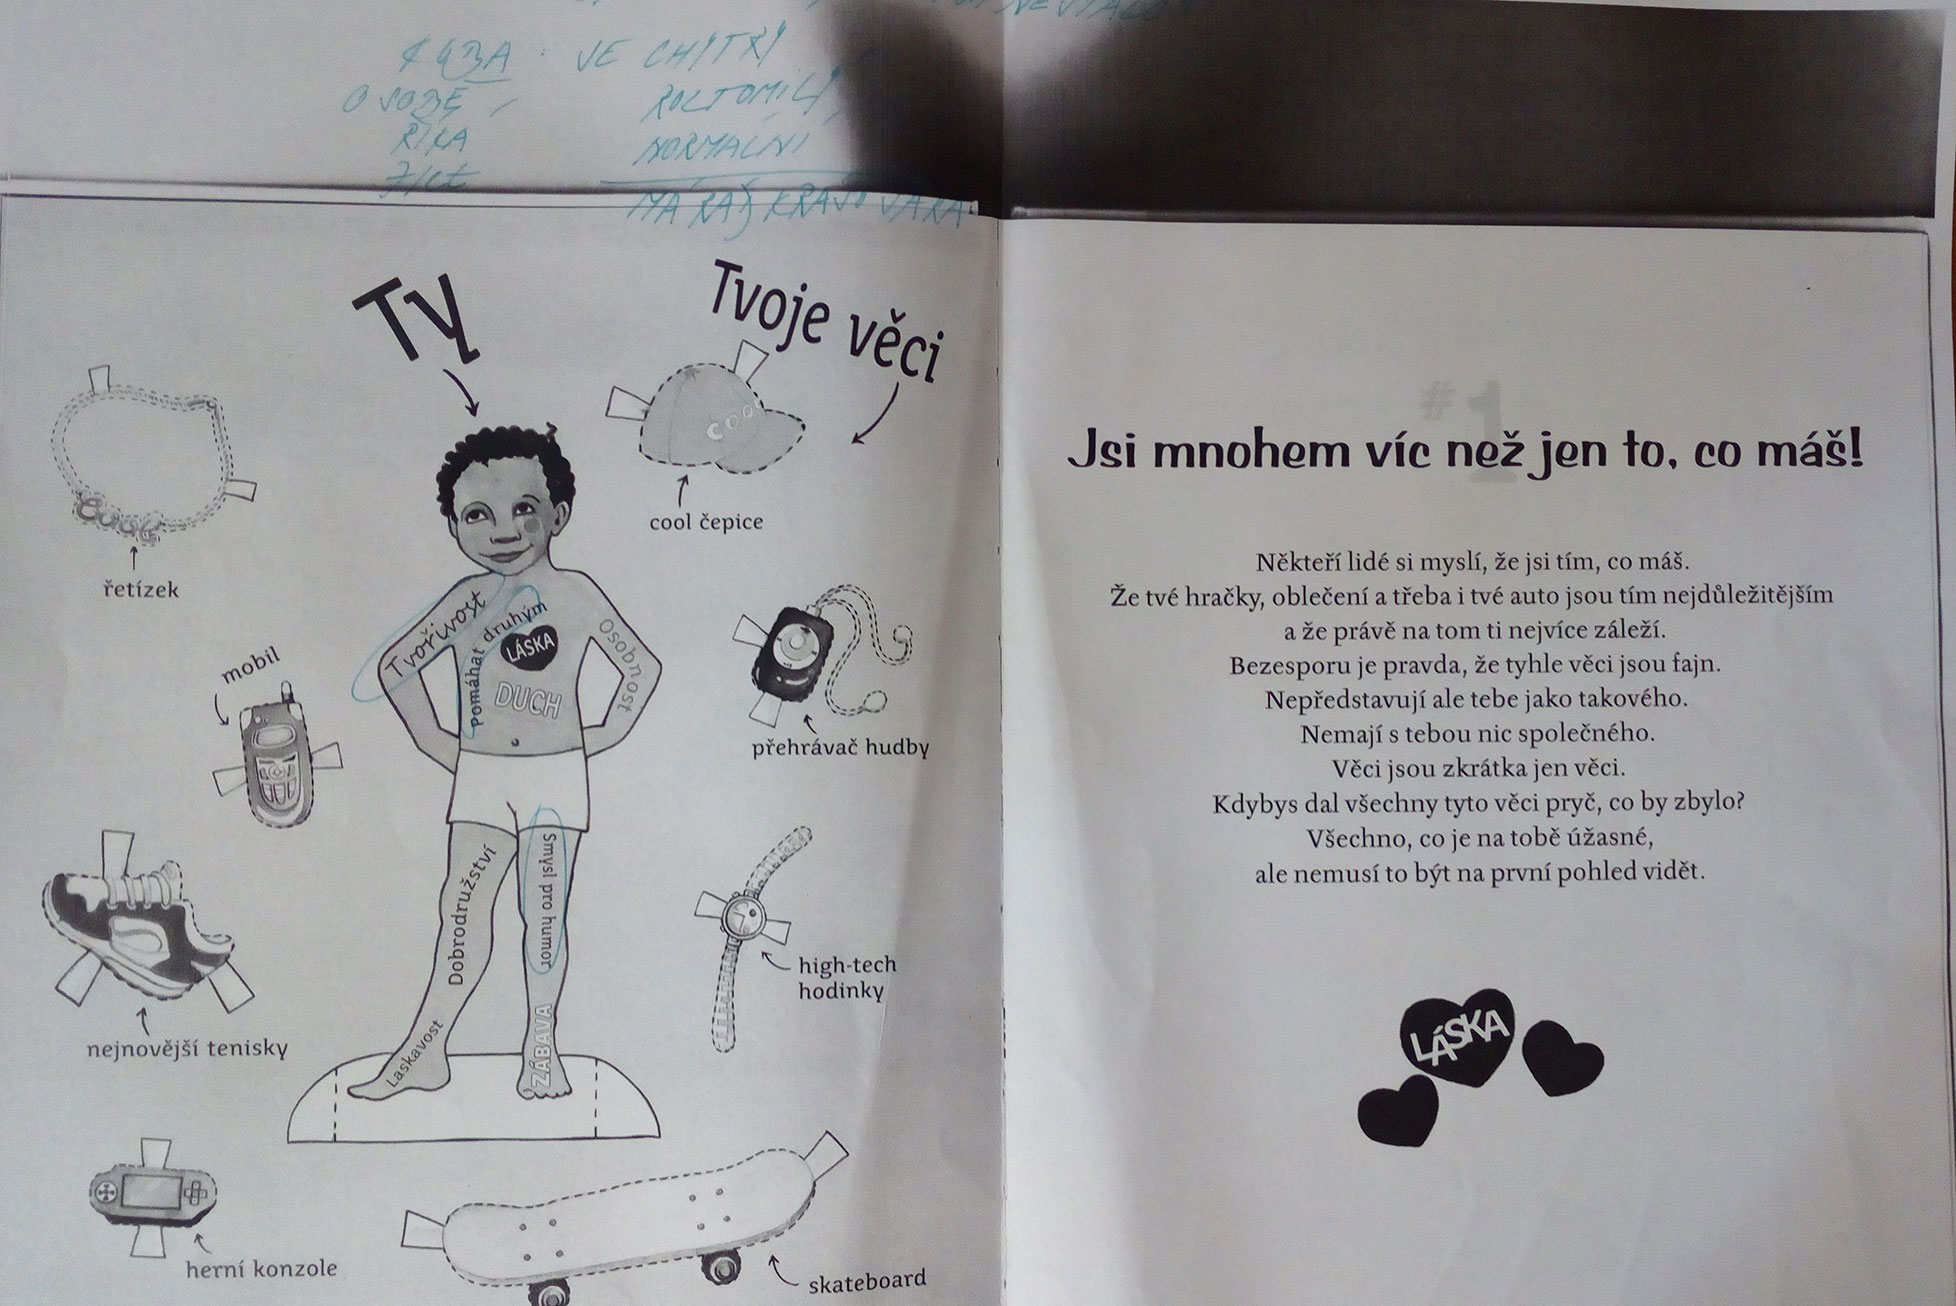 KUBA JE CHYTRÝ
O SOBĚ ROZTOMILÝ
ŘÍKÁ NORMÁLNÍ
MÁ RÁD
Ty
Tvoje věci
řetízek
cool čepice
COOL
mobil
přehrávač hudby
Tvořivost
Pomáhat druhým
LÁSKA
DUCH
Osobnost
Dobrodružství
Smysl pro humor
Laskavost
ZÁBAVA
nejnovější tenisky
high-tech
hodinky
herní konzole
skateboard
#1
Jsi mnohem víc než jen to, co máš!
Někteří lidé si myslí, že jsi tím, co máš.
Že tvé hračky, oblečení a třeba i tvé auto jsou tím nejdůležitějším
a že právě na tom ti nejvíce záleží.
Bezesporu je pravda, že tyhle věci jsou fajn.
Nepředstavují ale tebe jako takového.
Nemají s tebou nic společného.
Věci jsou zkrátka jen věci.
Kdybys dal všechny tyto věci pryč, co by zbylo?
Všechno, co je na tobě úžasné,
ale nemusí to být na první pohled vidět.
LÁSKA